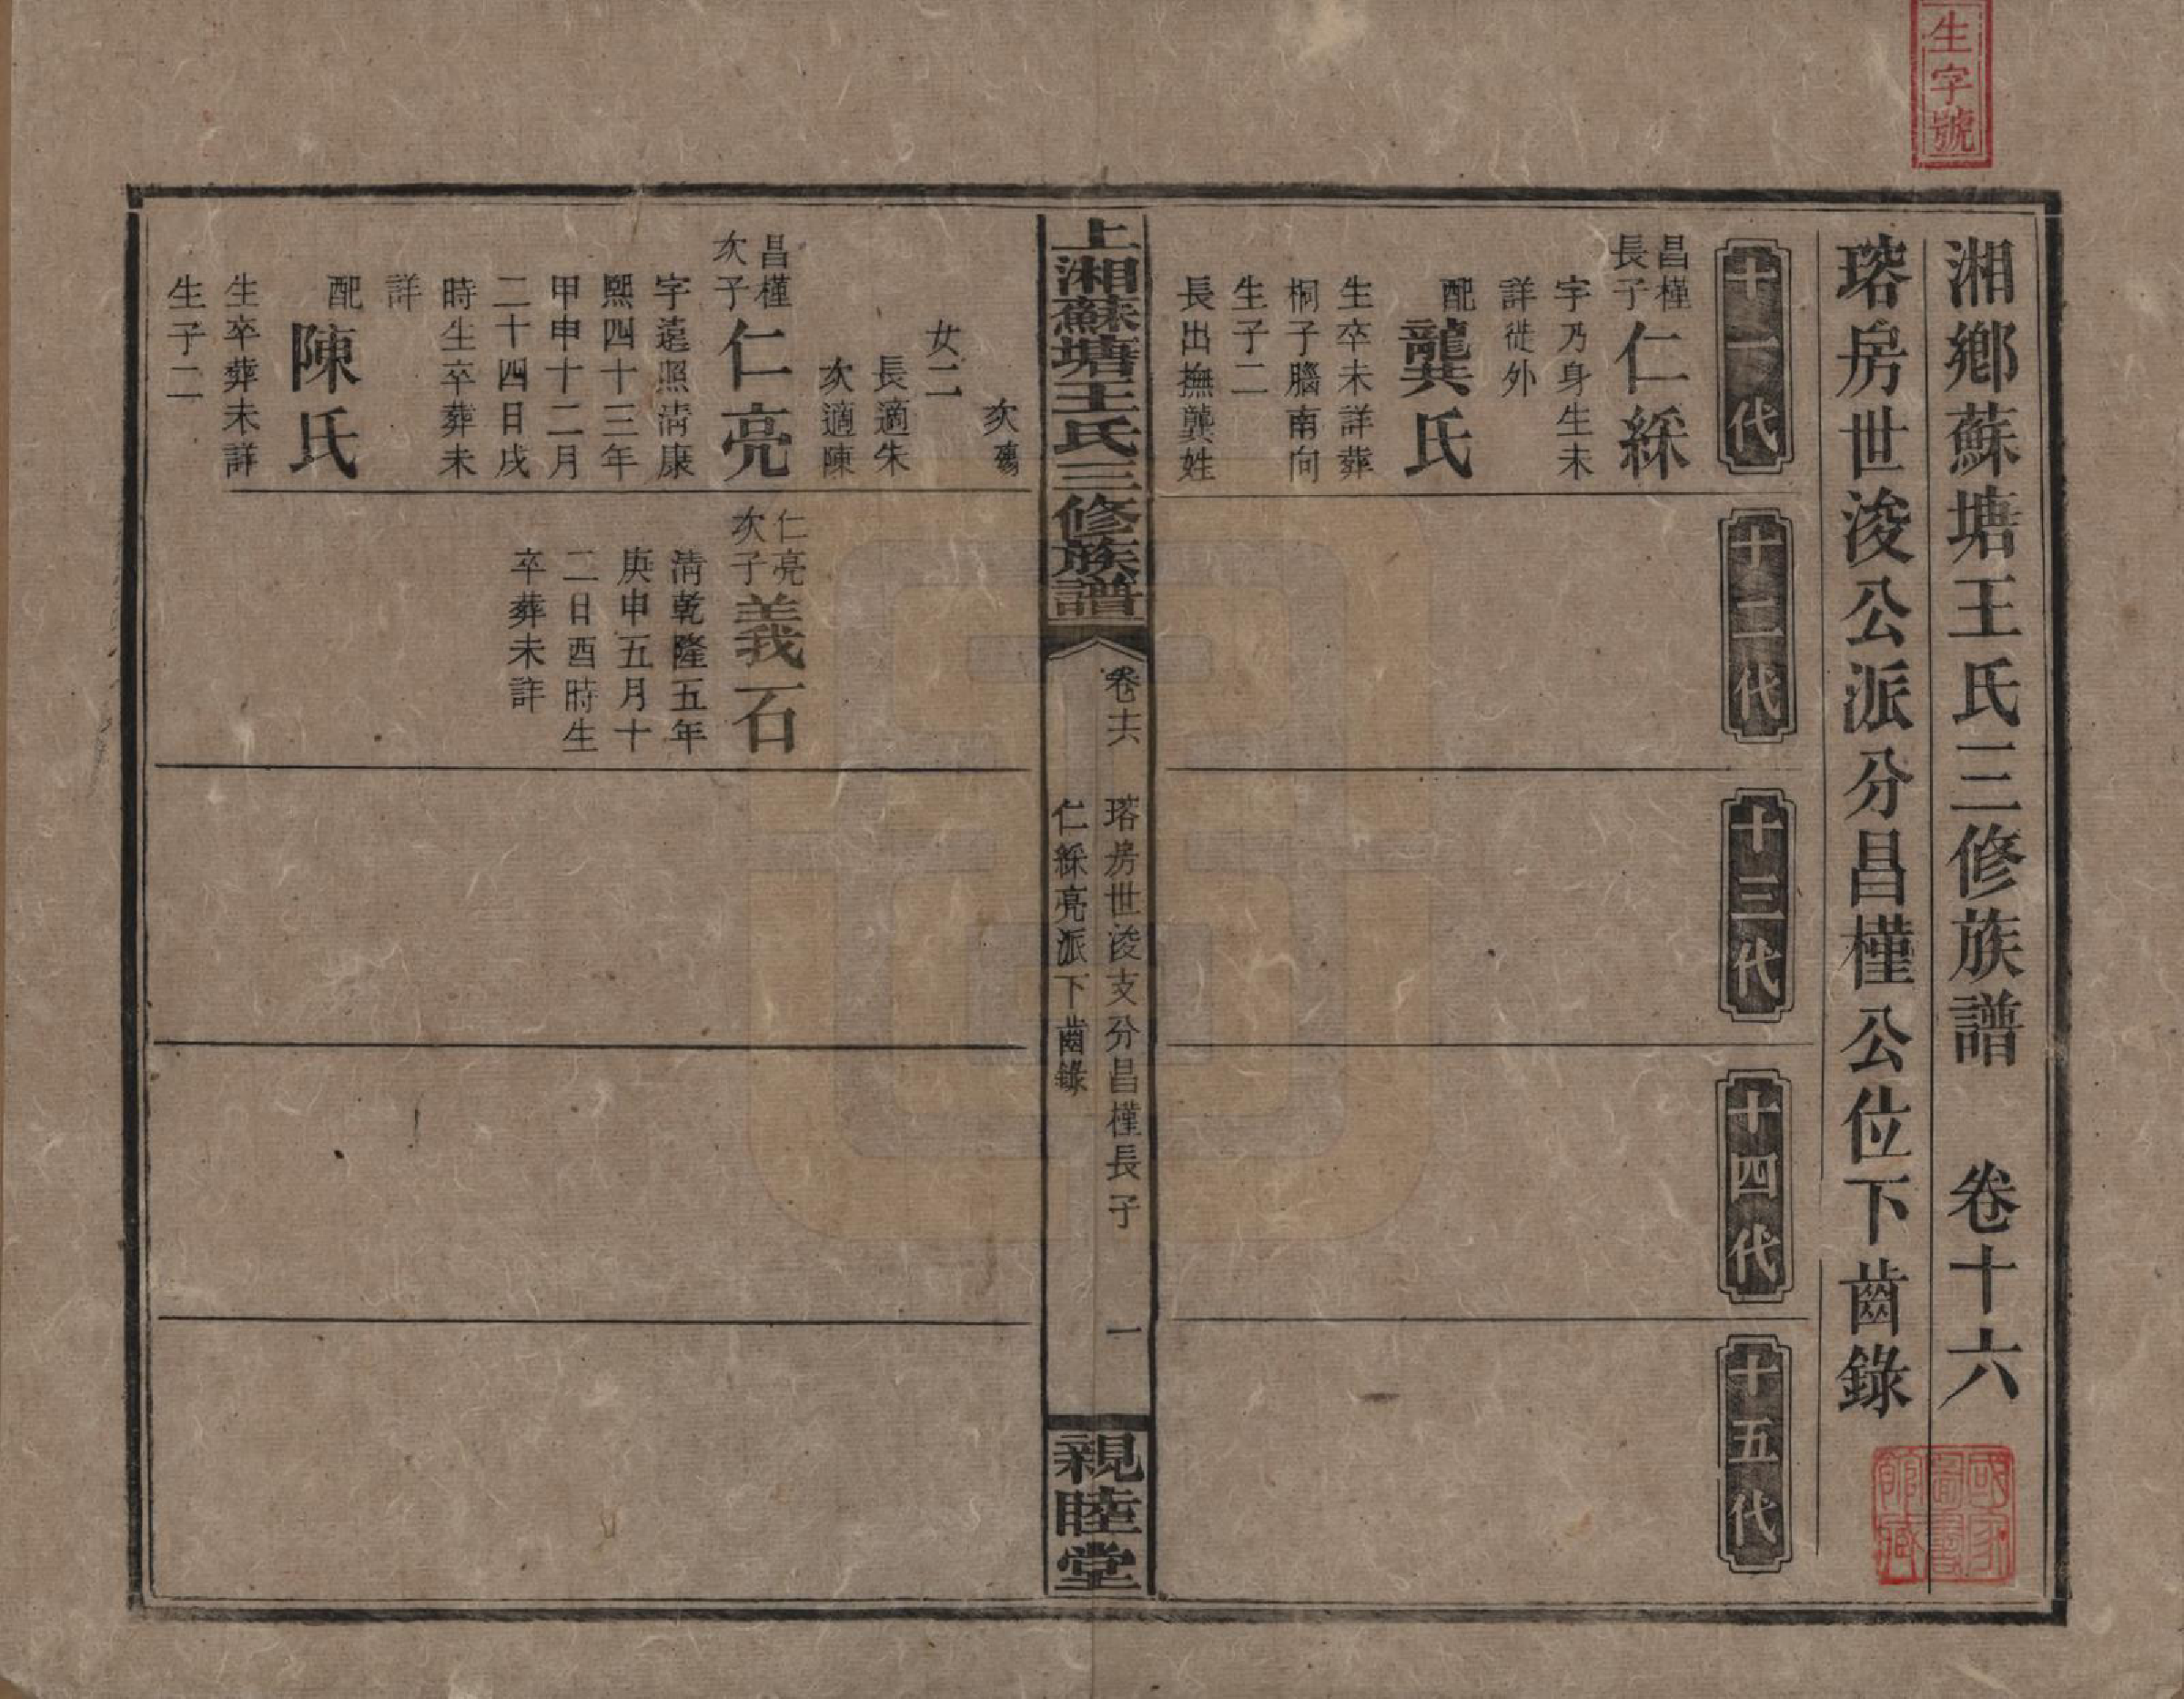 生字號
湘鄉蘇塘王氏三修族譜　卷十六
瑢房世浚公派分昌槿公位下齒錄
十一代
十二代
十三代
十四代
十五代
昌槿
長子
仁綵
字乃身生未
詳徙外
配
龔氏
生卒未詳葬
桐子腦南向
生子二
長出撫龔姓
上湘蘇塘王氏三修族譜
卷十六
瑢房世浚支分昌槿長子
仁綵亮派下齒錄
一
親睦堂
次殤
女二
長適朱
次適陳
昌槿
次子
仁亮
字遠照清康
熙四十三年
甲申十二月
二十四日戌
時生卒葬未
詳
配
陳氏
生卒葬未詳
生子二
仁亮
次子
義石
清乾隆五年
庚申五月十
二日酉時生
卒葬未詳
國家圖書館藏